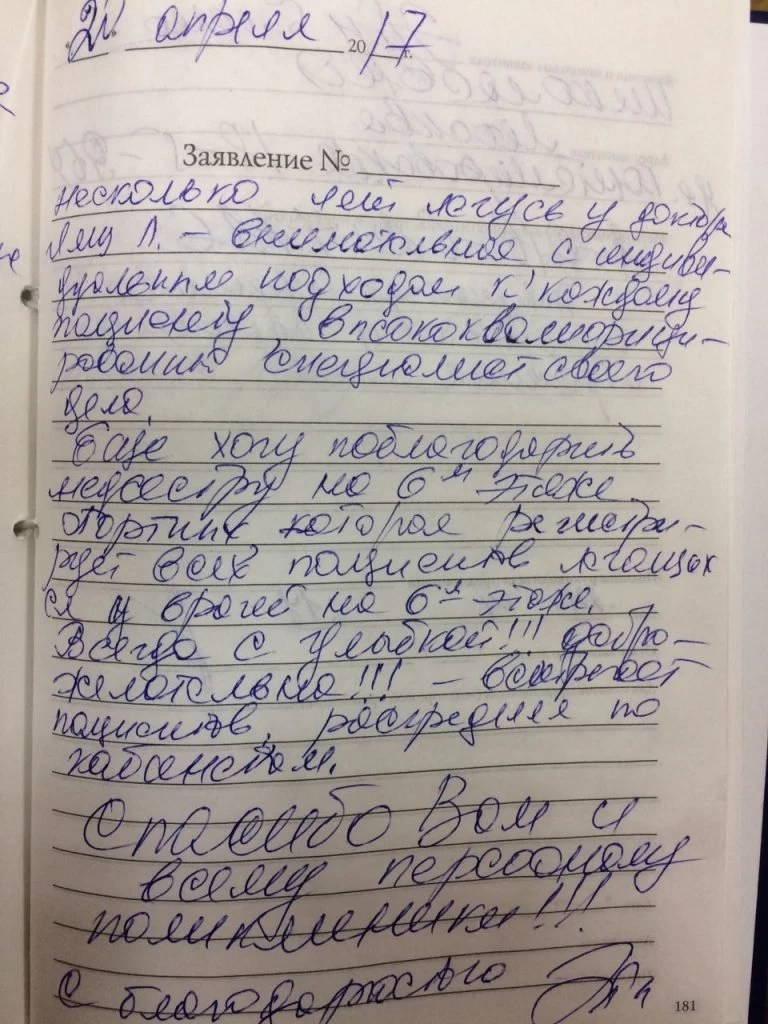 20 апреля 2017г.
Заявление №
несколько лет лечусь у доктора
Яму Л. – внимательное с индиви-
дуальным подходом к каждому
пациенту высококвалифици-
рованный специалист своего
дела.
Еще хочу поблагодарить
медсестру на 6м этаже.
которая регистри-
рует всех пациентов лечащих
ся у врачей на 6м этаже.
Всегда с улыбкой!!! добро-
желательно!!! – встречает
пациентов, распределяя по
кабинетам.
Спасибо Вам и
всему персоналу
поликлиники!!!
С благодарностью
181